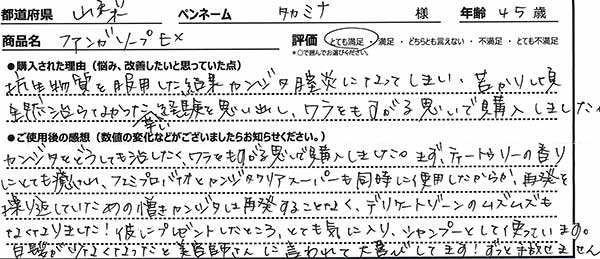 都道府県 山梨 ペンネーム タカミナ 様 年齢 45 歳
商品名 ファンガソープEX 評価 とても満足・満足・どちらとも言えない・不満足・とても不満足
*〇で囲んでお選びください。
●購入された理由（悩み、改善したいと思っていた点）
抗生物質を服用した結果カンジダ膣炎になってしまい、昔かかりし頃
全然治らなかった辛い経験を思い出し、ワラをもすがる思いで購入しました
●ご使用後の感想（数値の変化などがございましたらお知らせください。）
カンジダをどうしても治したく、ワラをもすがる思いで購入しました。まず、ティートゥリーの香り
にとても癒され、フェミプロバイオとカンジダクリアスーパーも同時に使用したからか、再発を
繰り返していたあの憎きカンジダは再発することなく、デリケートゾーンのムズムズも
なくなりました！彼にプレゼントしたところ、とても気に入り、シャンプーとして使っています。
白髪が少なくなったと美容師さんに言われて大喜びしてます！ずっと手放せません